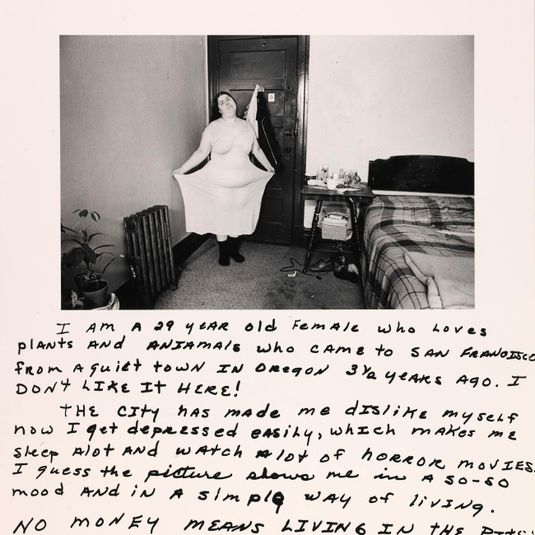 I AM A 29 YEAR Old FEMALE who LOVES
plants AND ANIAMALS who CAME to SAN FRANCISCO
FROM A quiet town IN OREGON 3½ YEARS AGO. I
DON't LIKE IT HERE!
THE CITY has MADE me dislike myself
now I get depressed easily, which makes me
sleep Alot AND watch Alot of HORROR MOVIES.
I guess the picture shows me in A so-so
mood AND in A simple way of living.
NO MONEY MEANS LIVING IN THE